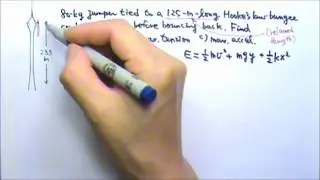 80-kg jumper tied to a 125-m-long Hooke's law bungee
before bounding back. Find
max. tension c) max. accel.
(relaxed length)
235 m
E = ½mv² + mgy + ½kx²